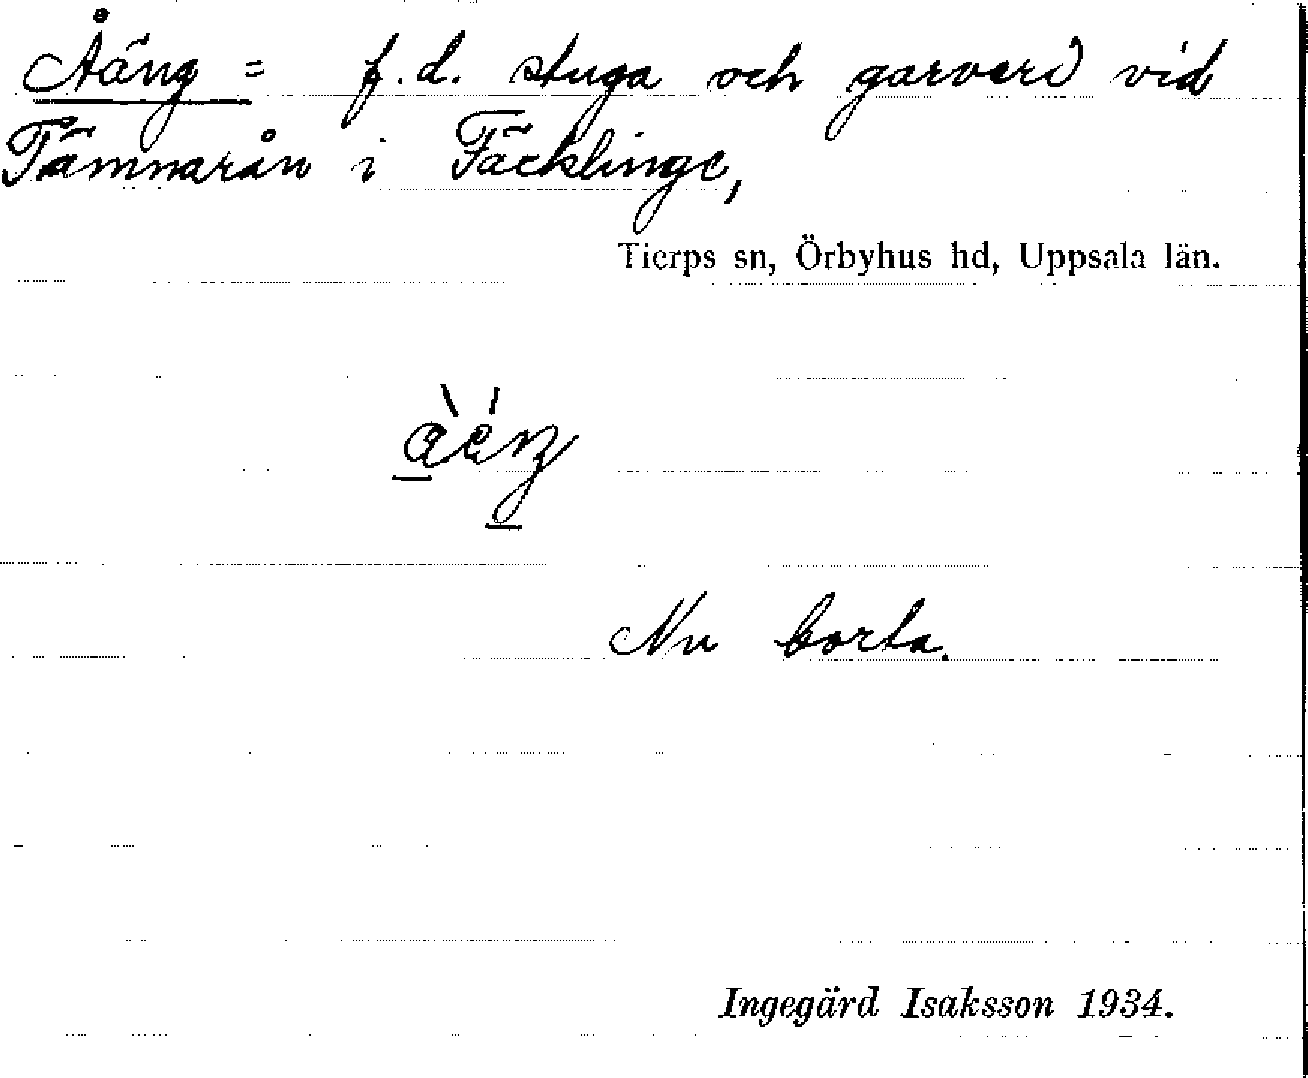 Åäng = f.d. stuga och garveri vid
Tämnarån i Fäcklinge,
Tierps sn, Örbyhus hd, Uppsala län.
Nu borta.
Ingegärd Isaksson 1934.